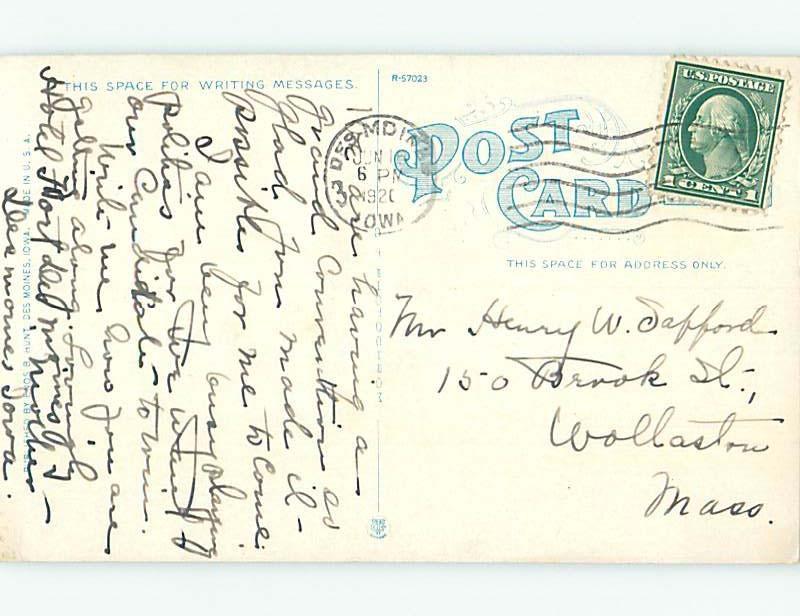 THIS SPACE FOR WRITING MESSAGES.
R-57023
POST
CARD
THIS SPACE FOR ADDRESS ONLY.
U.S. POSTAGE
1 CENT 1
DES MOINES
JUN 1
6 PM
1920
IOWA
We are having a
grand convention so
glad you made it
possible for me to come.
I am been busy playing
politics for we want
our Candidate to win.
Write me how you are
getting along. Lovingly
Mother
Hotel Fort Des Moines
Des moines Iowa.
Mr Henry W. Safford
150 Brook St.,
Wollaston
Mass.
PUBLISHED BY ENOS B. HUNT, DES MOINES, IOWA. MADE IN U. S. A.